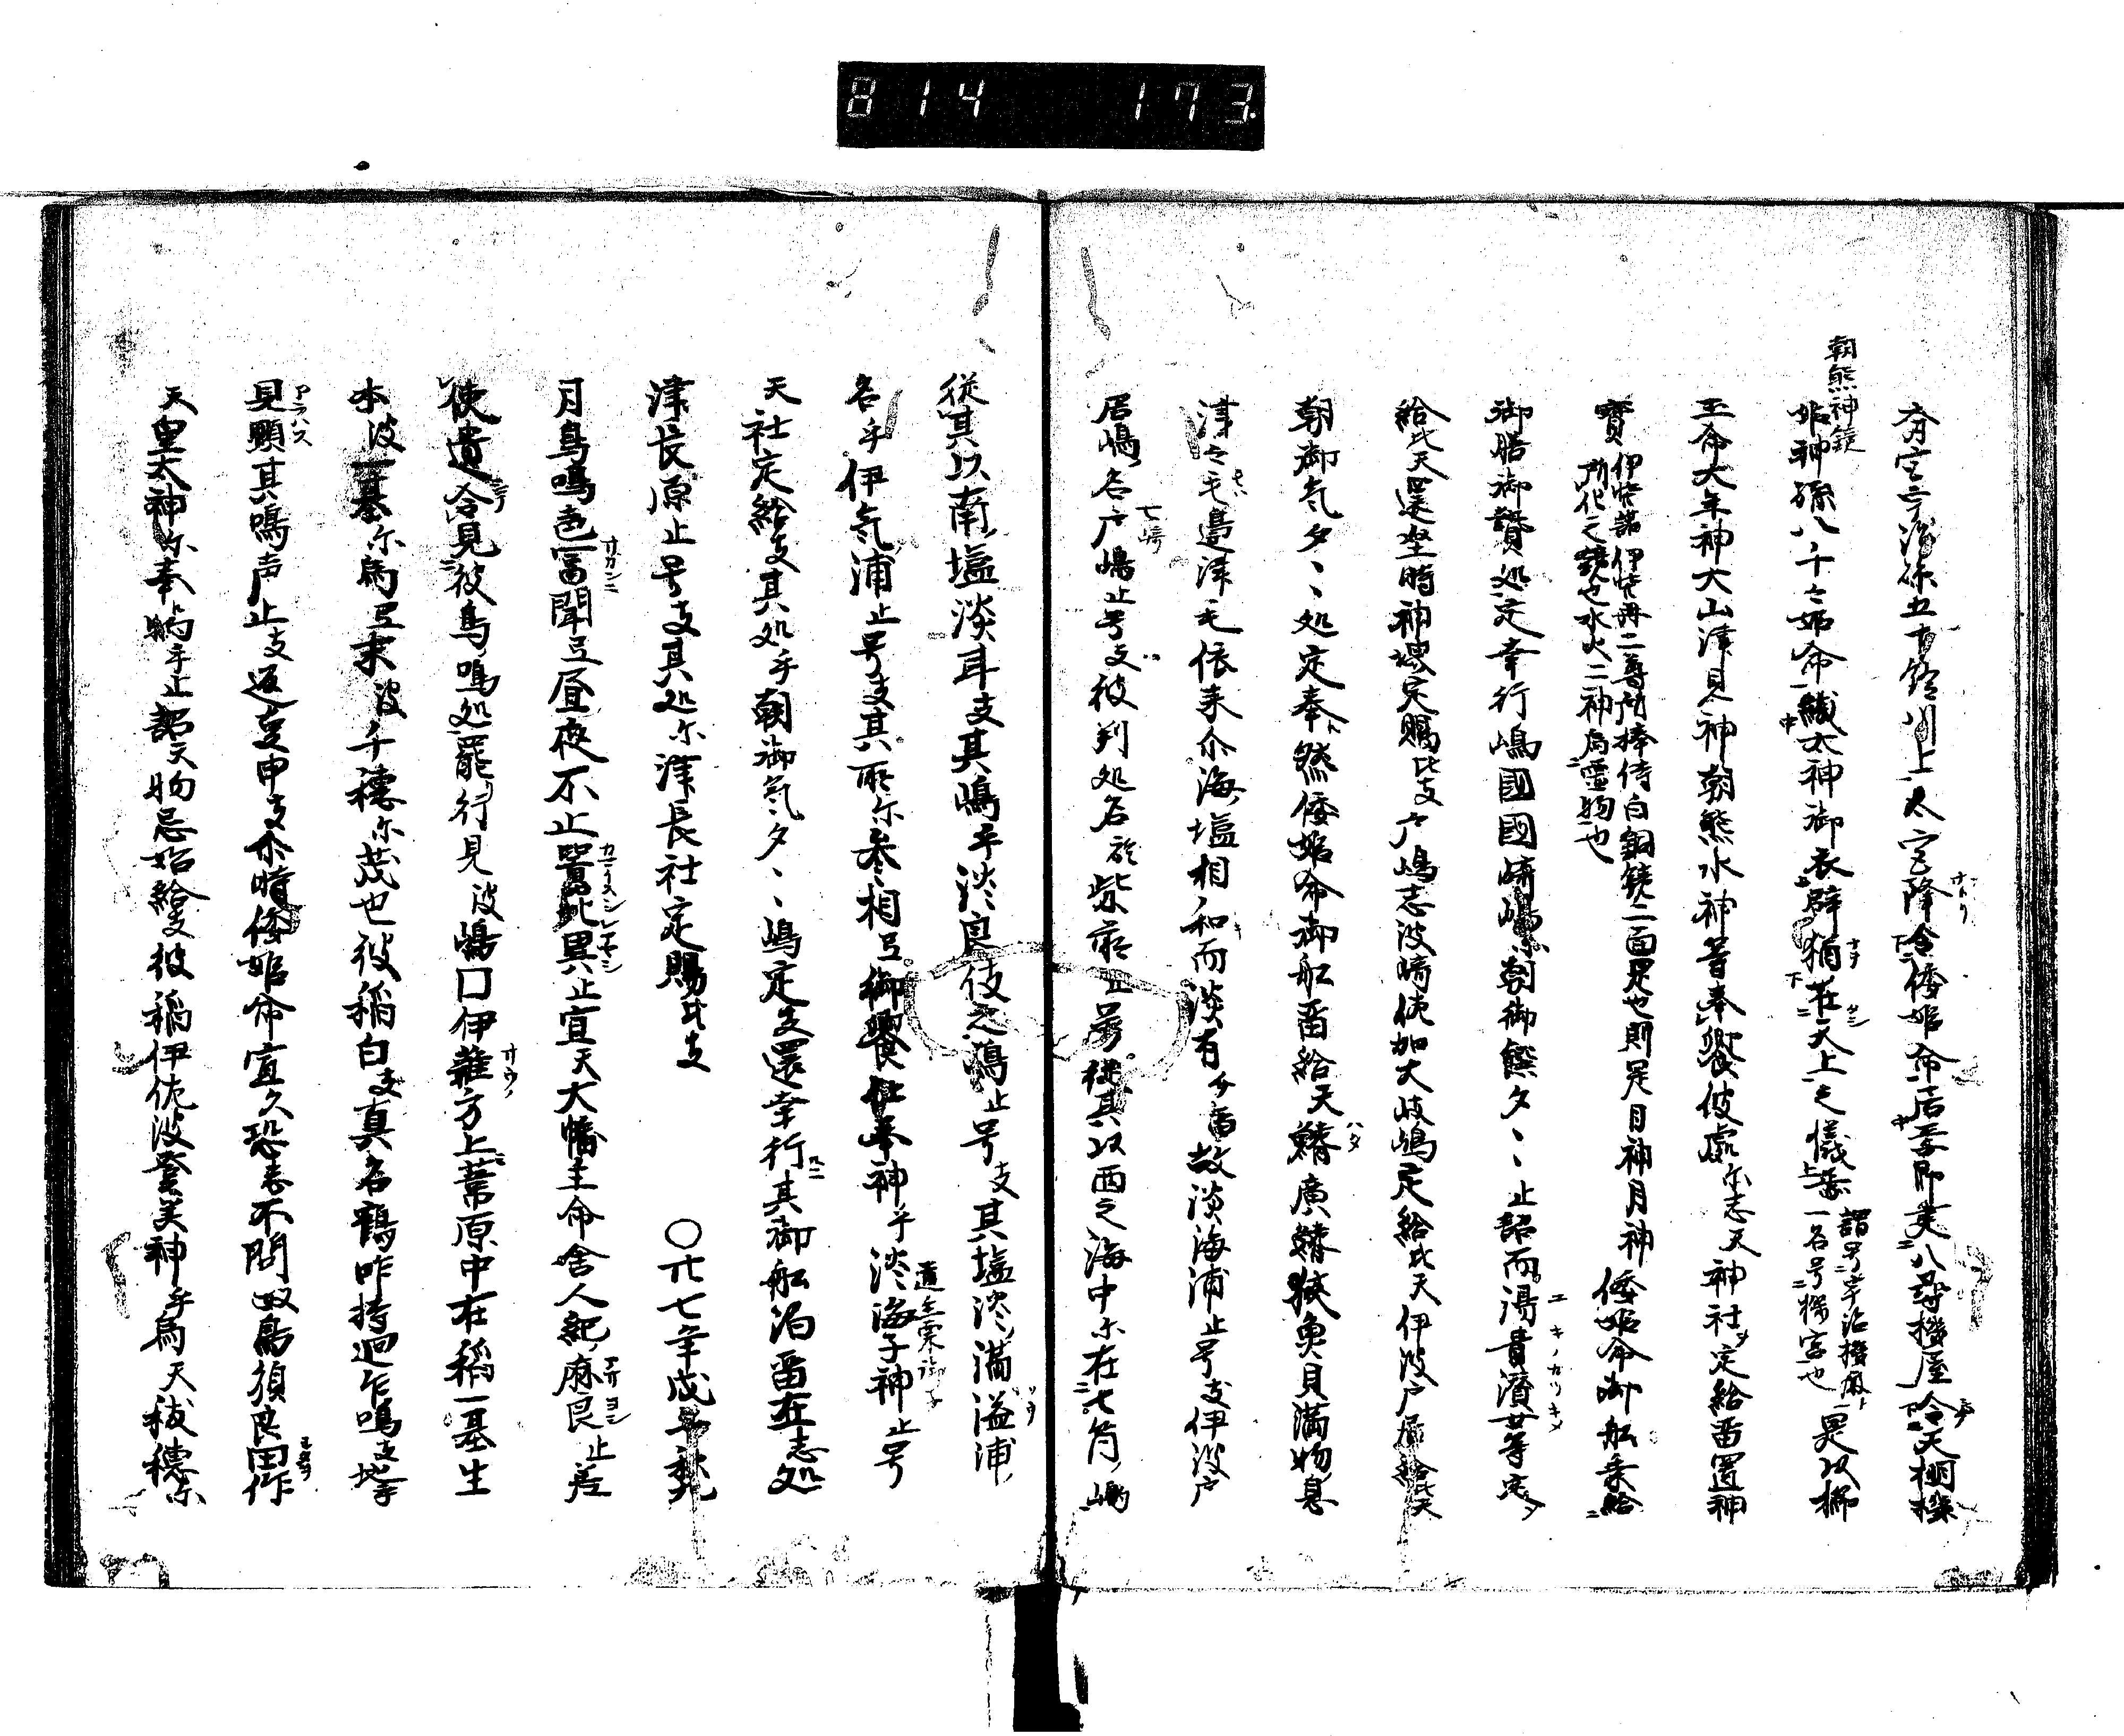 814 173.
斎宮于宇治縣五十鈴川上大宮際令倭姫命居焉即建八尋機屋令天棚機
朝熊神鏡
姫神孫八千々姫命織太神御衣譬猶在天上之儀焉謂号宇治機殿一名号機宮也是以櫛
玉命大年神大山津見神朝熊水神等奉饗彼處尓志天神社定給留置神
寶伊弉諾伊弉冉二尊所捧侍白銅鏡二面是也則是日神月神
所化之鏡也水火二神為霊物也
倭姫命御舩乗給
御膳御贄処定幸行嶋國國崎嶋尓朝御饌夕〻止詔而湯貴潜女等定
給比天還坐時神堺定賜比支戸嶋志波崎佐加太岐嶋定給比天伊波戸居給天
朝御氣夕〻処定奉然倭姫命御舩留給天鰭廣鰭狭魚貝満物息
津毛邊津毛依来尓海塩相和而淡有故淡海浦止号支伊波戸
居嶋名戸嶋止号支彼判処名柴前止号従其以西之海中尓在七箇嶋
七嶋
従其以南塩淡耳支其嶋乎淡良伎之嶋止号支其塩淡満溢浦
名乎伊氣浦止号支其所尓参相弖御饗仕奉神乎淡海子神止号
天社定給支其処乎朝御氣夕〻嶋定支還幸行其御舩泊留在志処
津長原止号支其処尓津長社定賜比支 〇廿七年戊午秋九
月鳥鳴声高聞弖昼夜不止囂此異止宣天大幡主命舎人紀麻良止差
使遣令見彼鳥鳴処罷行見波嶋国伊雑方上葦原中在稲一基生
本波一基尓為弖末波千穂尓茂也彼稲白真名鶴咋持廻乍鳴支
見顕其鳴声止支返事申支尓時倭姫命宣久恐志不問奴鳥須良田作
天皇太神尓奉物乎止詔天物忌始給支彼稲伊佐波登美神乎為天抜穂尓